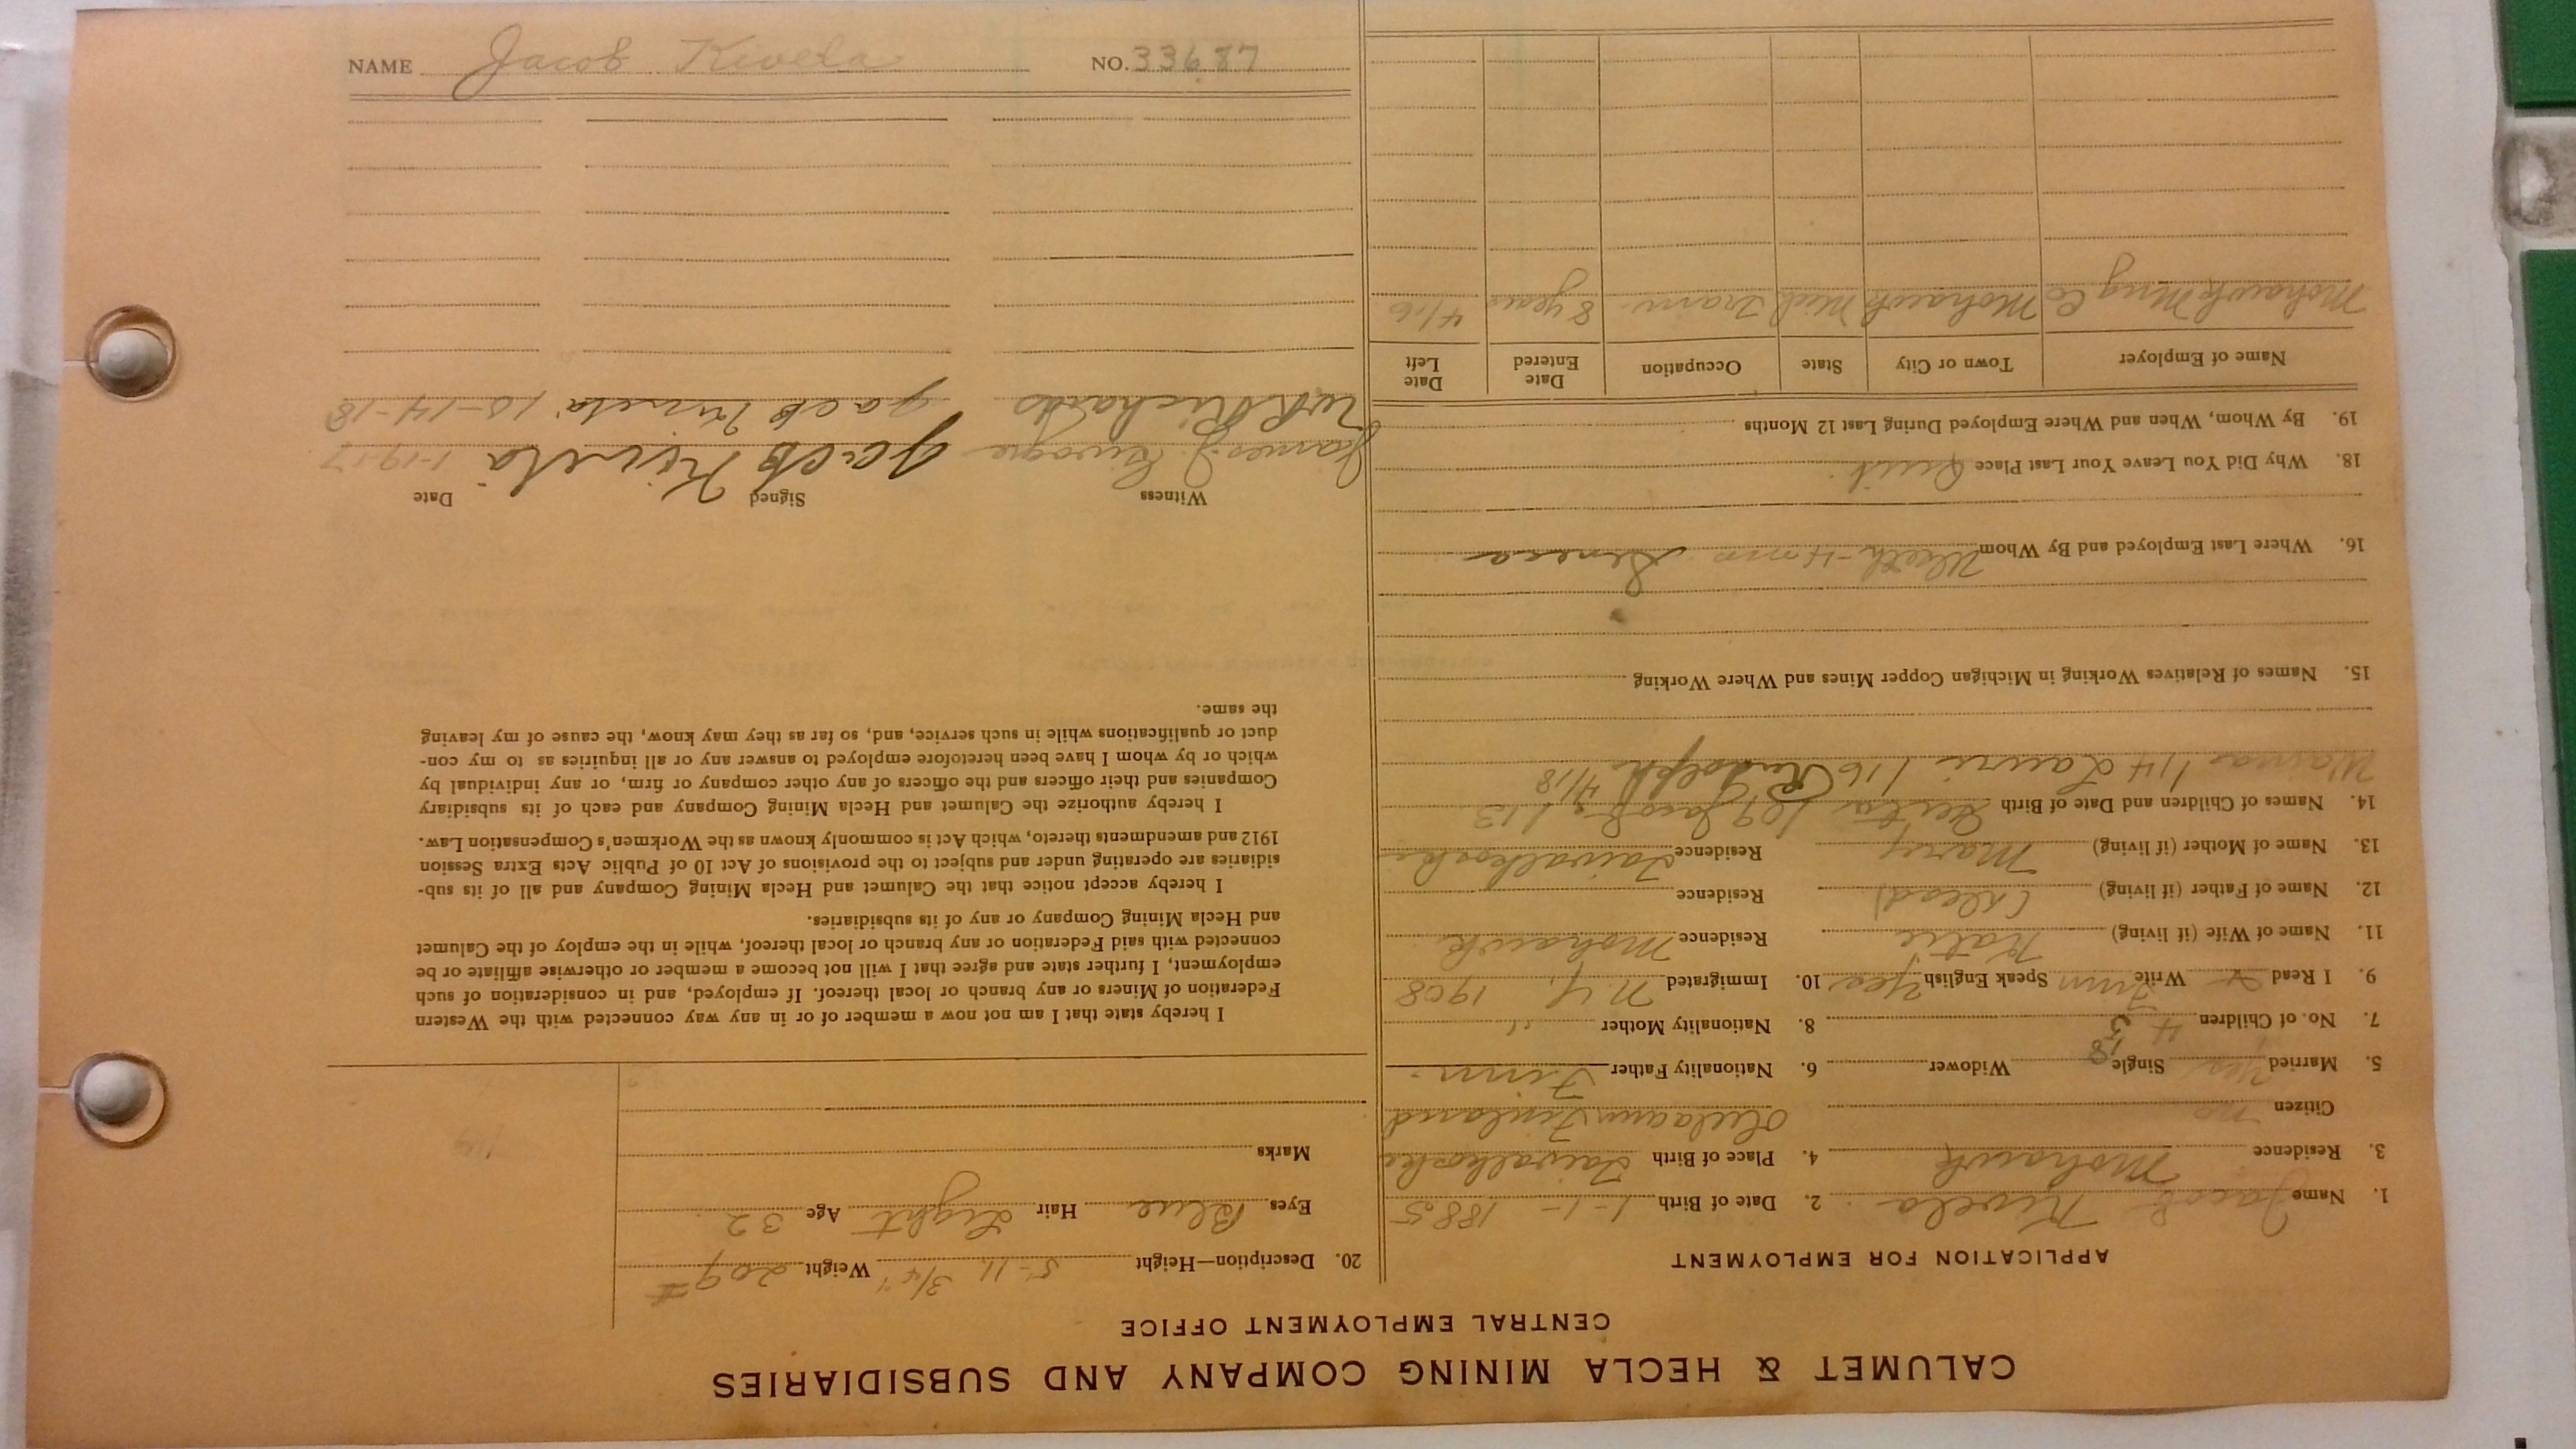 CALUMET & HECLA MINING COMPANY AND SUBSIDIARIES
CENTRAL EMPLOYMENT OFFICE
APPLICATION FOR EMPLOYMENT
1. Name Jacob Kivela 2. Date of Birth 1-1-1885
3. Residence Mohawk 4. Place of Birth Taivalkoski
Citizen no Oulu Finland
5. Married Yes Single Widower 6. Nationality Father Finn
18
7. No. of Children 4 5 8. Nationality Mother "
9. I Read & Write Finn Speak English Yes 10. Immigrated N.Y. 1908
11. Name of Wife (if living) Katie Residence Mohawk
12. Name of Father (if living) (Dead) Residence
13. Name of Mother (if living) Mary Residence Taivalkoski
14. Names of Children and Date of Birth /09 Jacob /13
/14 Lauri /16 Rudolph 4/18
15. Names of Relatives Working in Michigan Copper Mines and Where Working
16. Where Last Employed and By Whom Seneca
18. Why Did You Leave Your Last Place Quit
19. By Whom, When and Where Employed During Last 12 Months
Name of Employer Town or City State Occupation Date Entered Date Left
Mohawk Mng Co Mohawk Mich Tram 8 years 4/16
20. Description—Height 5-11 3/4" Weight 209#
Eyes Blue Hair Light Age 32
Marks
I hereby state that I am not now a member of or in any way connected with the Western
Federation of Miners or any branch or local thereof. If employed, and in consideration of such
employment, I further state and agree that I will not become a member or otherwise affiliate or be
connected with said Federation or any branch or local thereof, while in the employ of the Calumet
and Hecla Mining Company or any of its subsidiaries.
I hereby accept notice that the Calumet and Hecla Mining Company and all of its sub-
sidiaries are operating under and subject to the provisions of Act 10 of Public Acts Extra Session
1912 and amendments thereto, which Act is commonly known as the Workmen's Compensation Law.
I hereby authorize the Calumet and Hecla Mining Company and each of its subsidiary
Companies and their officers and the officers of any other company or firm, or any individual by
which or by whom I have been heretofore employed to answer any or all inquiries as to my con-
duct or qualifications while in such service, and, so far as they may know, the cause of my leaving
the same.
Witness Signed Date
James J. Jacob Kivela 1-19-17
W R Richards Jacob Kivela 10-14-18
NAME Jacob Kivela NO. 33687